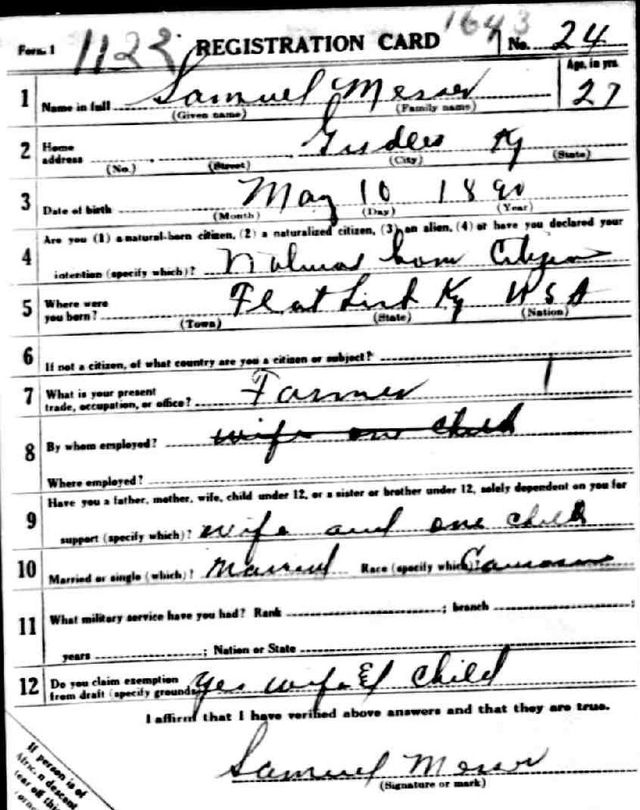 Form 1 1123 REGISTRATION CARD 1643 No. 24
Age, in yrs.
1 Name in full Samuel Messer 27
(Given name) (Family name)
2 Home address Ky
(No.) (Street) (City) (State)
3 Date of birth May 10 1890
(Month) (Day) (Year)
4 Are you (1) a natural-born citizen, (2) a naturalized citizen, (3) an alien, (4) or have you declared your
intention (specify which)? Natural born Citizen
5 Where were you born? Flat Lick Ky USA
(Town) (State) (Nation)
6 If not a citizen, of what country are you a citizen or subject?
7 What is your present trade, occupation, or office? Farmer
8 By whom employed? wife one child
Where employed?
9 Have you a father, mother, wife, child under 12, or a sister or brother under 12, solely dependent on you for
support (specify which)? wife and one child
10 Married or single (which)? Married Race (specify which)? Caucasian
11 What military service have you had? Rank ; branch ;
years ; Nation or State
12 Do you claim exemption from draft (specify grounds)? yes wife & child
I affirm that I have verified above answers and that they are true.
Samuel Messer
(Signature or mark)
If person is of
African descent
tear off this
corner